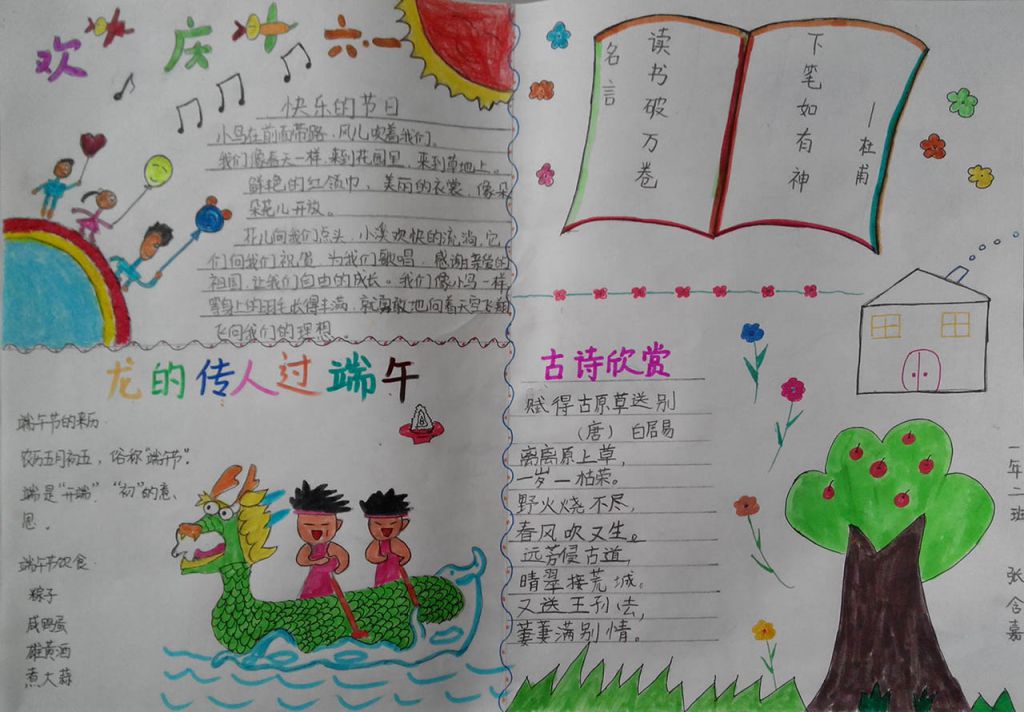 欢庆六一
快乐的节日
小鸟在前面带路，风儿吹着我们。
我们像春天一样，来到花园里，来到草地上。
鲜艳的红领巾，美丽的衣裳，像朵
朵花儿开放。
花儿向我们点头，小溪欢快的流淌，它
们向我们祝贺，为我们歌唱，感谢亲爱的
祖国，让我们自由的成长。我们像小鸟一样，
等身上的羽毛长得丰满，就勇敢地向着天空飞翔
飞向我们的理想。
龙的传人过端午
端午节的来历
农历五月初五，俗称"端午节"。
端是"开端""初"的意
思。
端午节饮食
粽子
咸鸭蛋
雄黄酒
煮大蒜
名言
读书破万卷
下笔如有神
—杜甫
古诗欣赏
赋得古原草送别
（唐） 白居易
离离原上草，
一岁一枯荣。
野火烧不尽，
春风吹又生。
远芳侵古道，
晴翠接荒城。
又送王孙去，
萋萋满别情。
一年二班 张含嘉